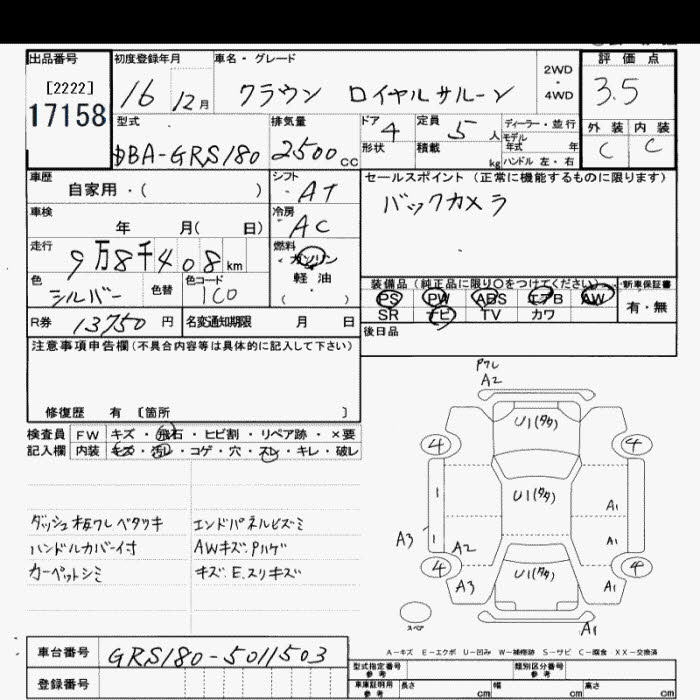 出品番号 初度登録年月 車名・グレード 2WD・4WD 評価点
[2222]
17158
16 12月 クラウン ロイヤルサルーン 3.5
型式 排気量 ドア 4 定員 5人 ディーラー・並行 外装 内装
DBA-GRS180 2500cc 形状 積載 kg モデル年式 年 ハンドル 左・右 C C
車歴 シフト セールスポイント (正常に機能するものに限ります)
自家用・( ) AT バックカメラ
車検 冷房
年 月( 日) AC
走行 燃料
9万8千408km ガソリン
軽油
( )
色 色替 色コード 装備品 (純正品に限り○をつけてください) 新車保証書
シルバー 1C0 PS PW ABS エアB AW 有・無
SR ナビ TV カワ
R券 13750円 名変通知期限 月 日 後日品
注意事項申告欄(不具合内容等は具体的に記入して下さい)
修復歴 有 [箇所 ]
検査員 FW キズ・飛石・ヒビ割・リペア跡・×要
記入欄 内装 キズ・汚レ・コゲ・穴・スレ・キレ・破レ
ダッシュ板ワレベタツキ エンドパネルヒズミ
ハンドルカバー付 AWキズ.Pハゲ
カーペットシミ キズ.E.スリキズ
Pワレ
A2
U1(タタ)
4 4
1 U1(タタ) A1
A3 1 A2 A1
4 U1(タタ) 4
A3 A1
スペア A1
A-キズ E-エクボ U-凹み W-補修跡 S-サビ C-腐食 XX-交換済
車台番号 GRS180-5011503
型式指定番号 参考 類別区分番号 参考
登録番号
車庫証明用 参考 長さ cm 幅 cm 高さ cm